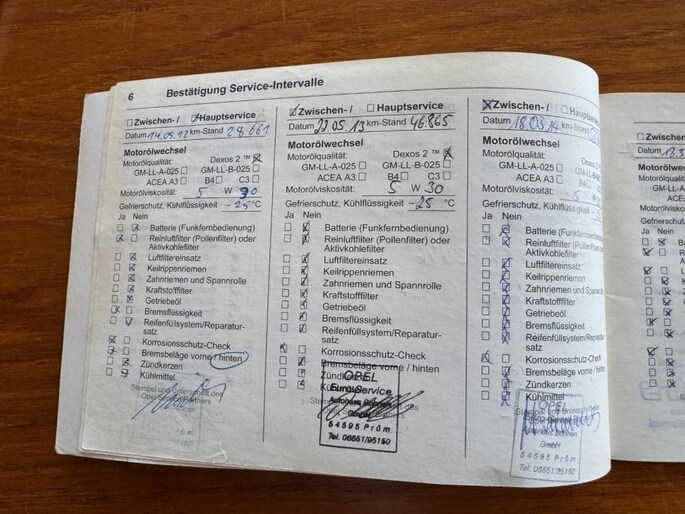 6 Bestätigung Service-Intervalle
Zwischen- / Hauptservice
Datum 14.05.12 km-Stand 28.661
Motorölwechsel
Motorölqualität: Dexos 2 ™
GM-LL-A-025 GM-LL-B-025
ACEA A3 B4 C3
Motorölviskosität: 5 W 30
Gefrierschutz, Kühlflüssigkeit -25 °C
Ja Nein
Batterie (Funkfernbedienung)
Reinluftfilter (Pollenfilter) oder
Aktivkohlefilter
Luftfiltereinsatz
Keilrippenriemen
Zahnriemen und Spannrolle
Kraftstofffilter
Getriebeöl
Bremsflüssigkeit
Reifenfüllsystem/Reparatur-
satz
Korrosionsschutz-Check
Bremsbeläge vorne / hinten
Zündkerzen
Kühlmittel
Stempel und Unterschrift des
Opel Service Partners
Zwischen- / Hauptservice
Datum 22.05.13 km-Stand 46.865
Motorölwechsel
Motorölqualität: Dexos 2 ™
GM-LL-A-025 GM-LL-B-025
ACEA A3 B4 C3
Motorölviskosität: 5 W 30
Gefrierschutz, Kühlflüssigkeit -25 °C
Ja Nein
Batterie (Funkfernbedienung)
Reinluftfilter (Pollenfilter) oder
Aktivkohlefilter
Luftfiltereinsatz
Keilrippenriemen
Zahnriemen und Spannrolle
Kraftstofffilter
Getriebeöl
Bremsflüssigkeit
Reifenfüllsystem/Reparatur-
satz
Korrosionsschutz-Check
Bremsbeläge vorne / hinten
Zündkerzen
OPEL
Euro-Service
Autohaus
GmbH
54595 Prüm
Tel. 06551/95150
Zwischen- / Hauptservice
Datum 18.03.14 km-Stand
Motorölwechsel
Motorölqualität: Dexos 2 ™
GM-LL-A-025 GM-LL-B-025
ACEA A3 B4 C3
Motorölviskosität: 5 W 30
Gefrierschutz, Kühlflüssigkeit
Ja Nein
Batterie (Funkfernbedienung)
Reinluftfilter (Pollenfilter) oder
Aktivkohlefilter
Luftfiltereinsatz
Keilrippenriemen
Zahnriemen und Spannrolle
Kraftstofffilter
Getriebeöl
Bremsflüssigkeit
Reifenfüllsystem/Reparatur-
satz
Korrosionsschutz-Check
Bremsbeläge vorne / hinten
Zündkerzen
Kühlmittel
OPEL
GmbH
54595 Prüm
Tel. 06551/95150
Zwischen-
Datum
Motorölwe
Motorölqualität
GM-LL-A
ACEA
Motorölviskosi
Gefrierschutz
Ja Nein